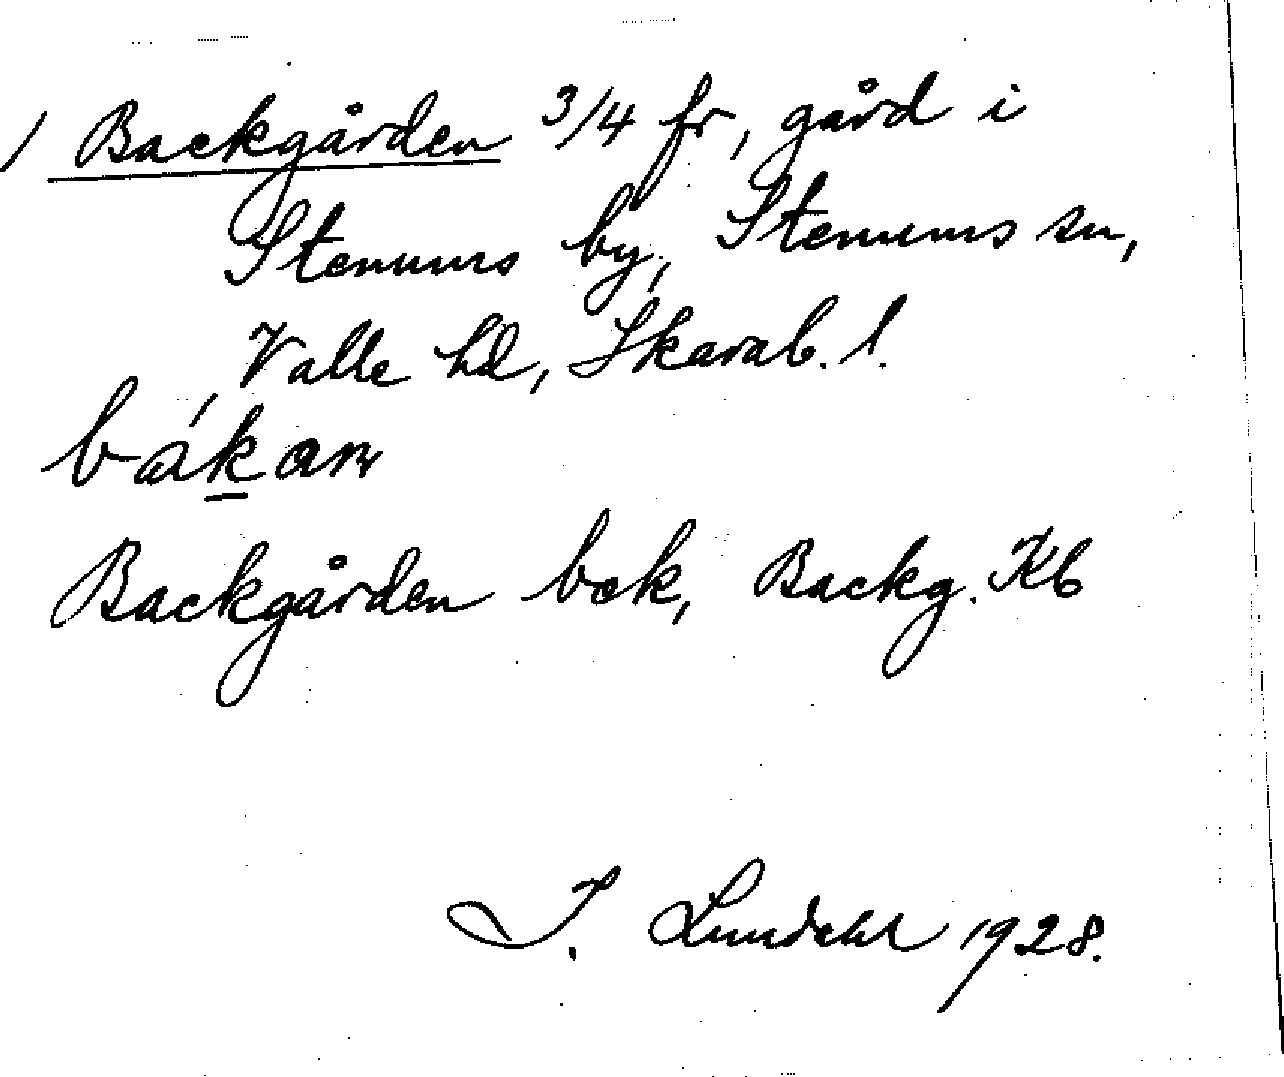 / Backgården 3/4 fr, gård i
Stenums by, Stenums sn,
Valle hd, Skarab. l.
bákan
Backgården bok, Backg. Kb
I. Lundahl 1928.